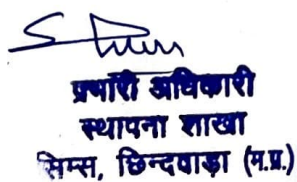 प्रभारी अधिकारी
स्थापना शाखा
सिम्स, छिन्दवाड़ा (म.प्र.)